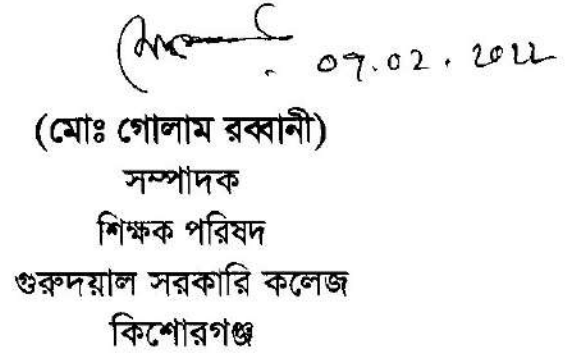 09.02.2022
(মোঃ গোলাম রব্বানী)
সম্পাদক
শিক্ষক পরিষদ
গুরুদয়াল সরকারি কলেজ
কিশোরগঞ্জ